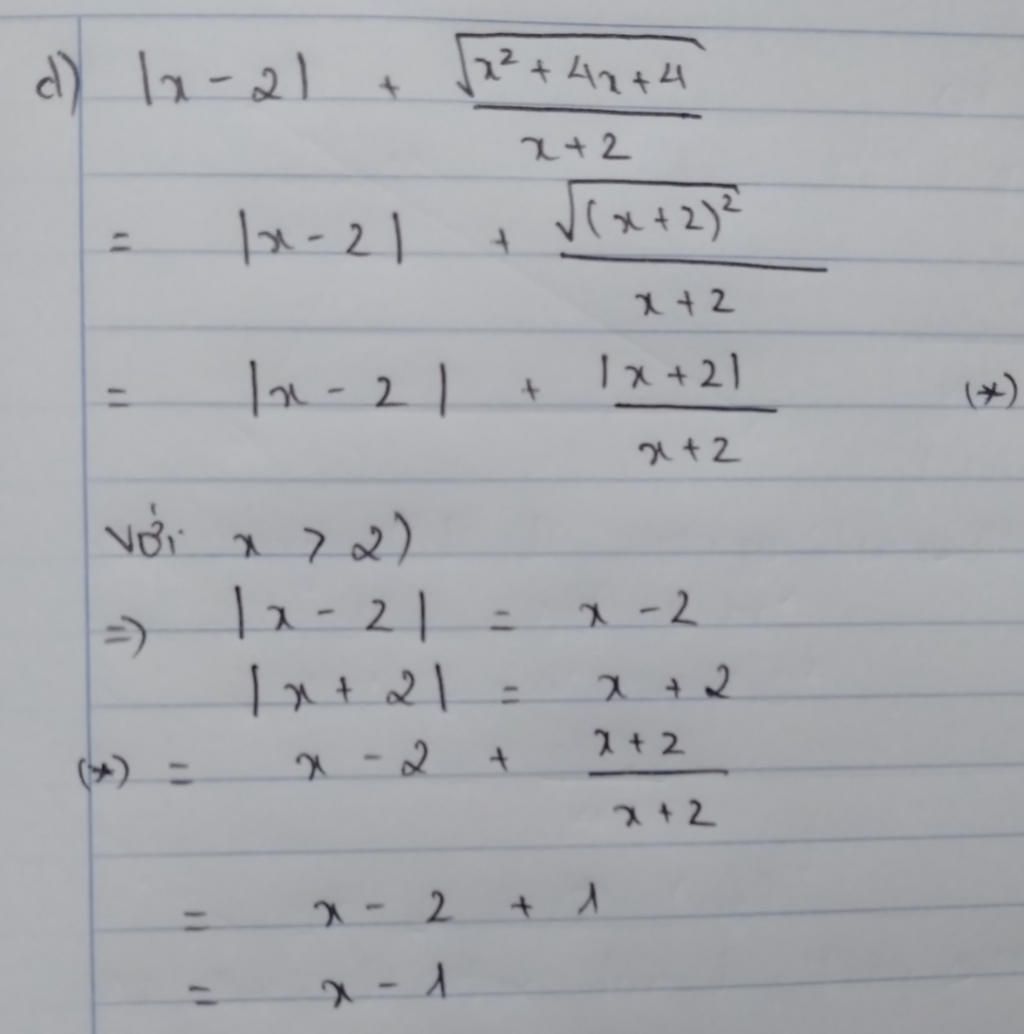 d) |x - 2| + √(x² + 4x + 4) / (x + 2)
= |x - 2| + √((x + 2)²) / (x + 2)
= |x - 2| + |x + 2| / (x + 2) (*)
Với x > 2)
=> |x - 2| = x - 2
|x + 2| = x + 2
(*) = x - 2 + (x + 2) / (x + 2)
= x - 2 + 1
= x - 1